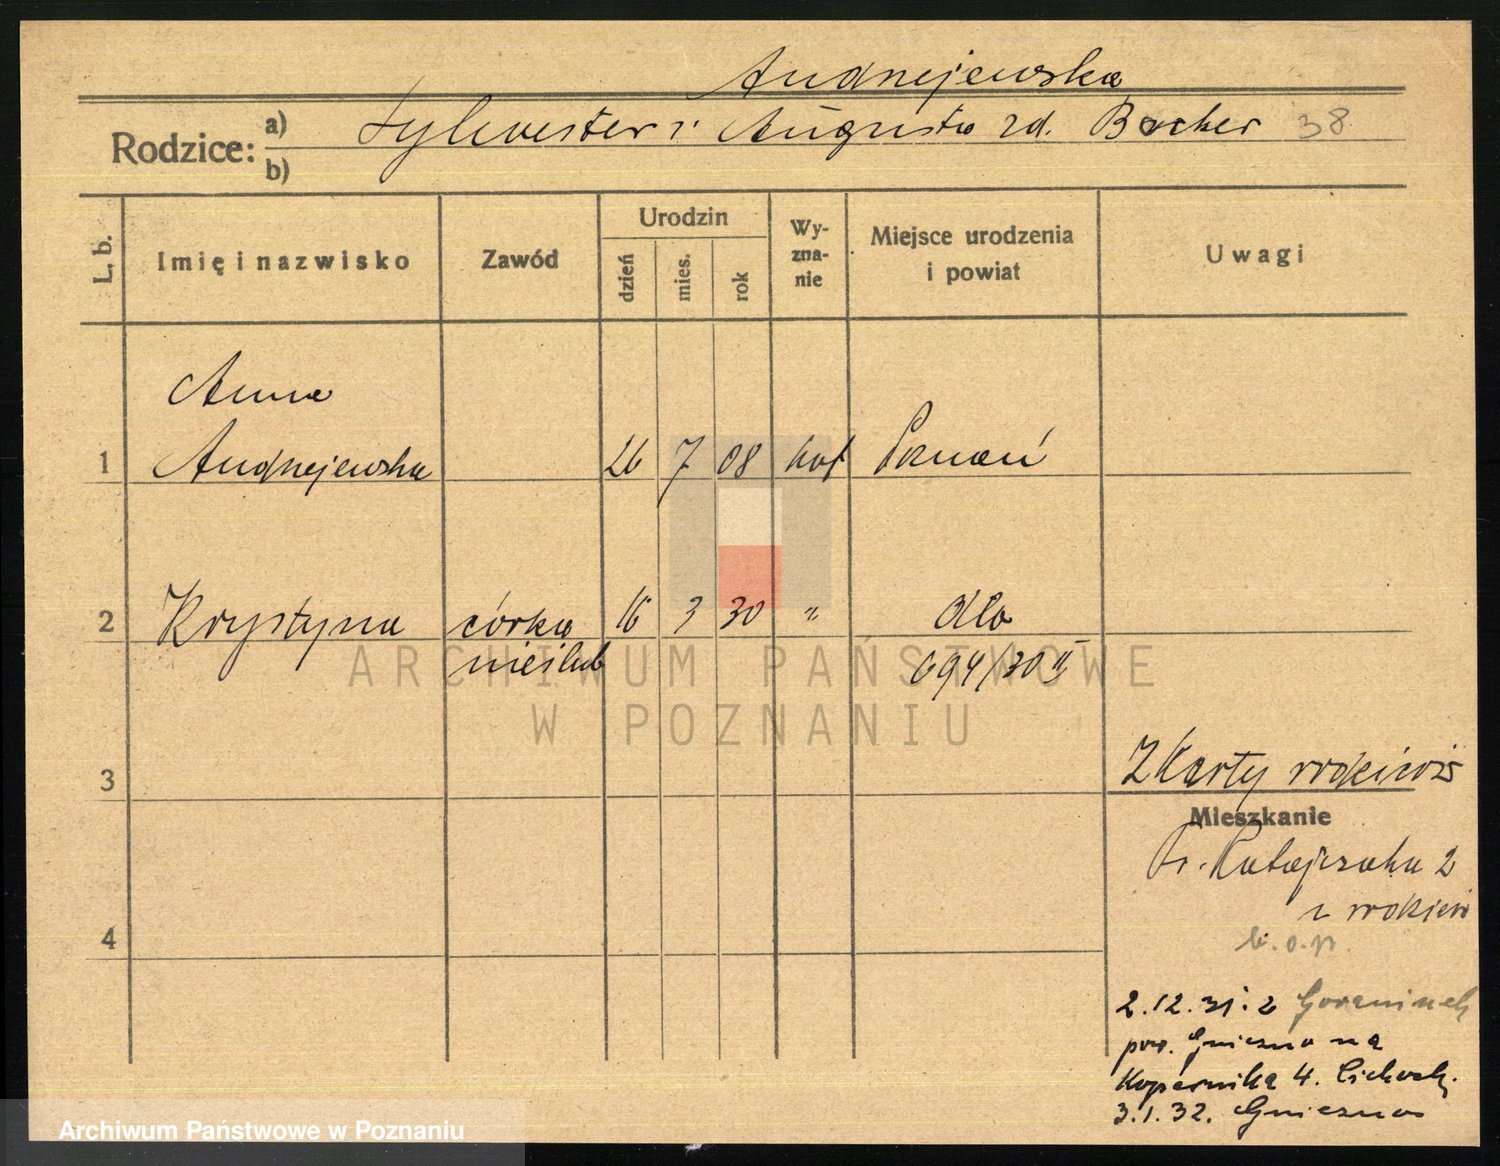 Andrzejewska
Rodzice: a) Sylwester i Augusta zd. Bocher 38
b)
L. b. Imię i nazwisko Zawód Urodzin dzień mies. rok Wy-zna-nie Miejsce urodzenia i powiat Uwagi
Anna
1 Andrzejewska 26 7 08 kat Poznań
2 Krystyna córka 16 3 30 " dto
nieślub 694/30 II
3 Z Karty rodziców
Mieszkanie
Fr. Ratajczaka 2
z rodzicw
4 b. o. p.
2.12.31. z
pow. Gniezno na
Kopernika 4. Cichock.
3.1.32. Gniezno
ARCHIWUM PAŃSTWOWE
W POZNANIU
Archiwum Państwowe w Poznaniu